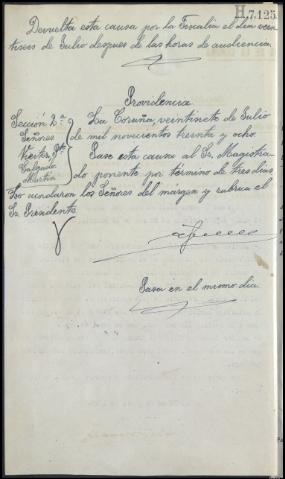 H.7.125.
Devuelta esta causa por la Fiscalía el dia vein
tiseis de Julio despues de las horas de audiencia.
Providencia
Sección 2ª La Coruña, veintisiete de Julio
Señores de mil novecientos treinta y ocho.
Vieites Pte Pase esta causa al Sr. Magistra
Salgado do ponente por término de tres dias
Martín
Lo acordaron los Señores del margen y rubrica el
Sr. Presidente.
Pasa en el mismo dia